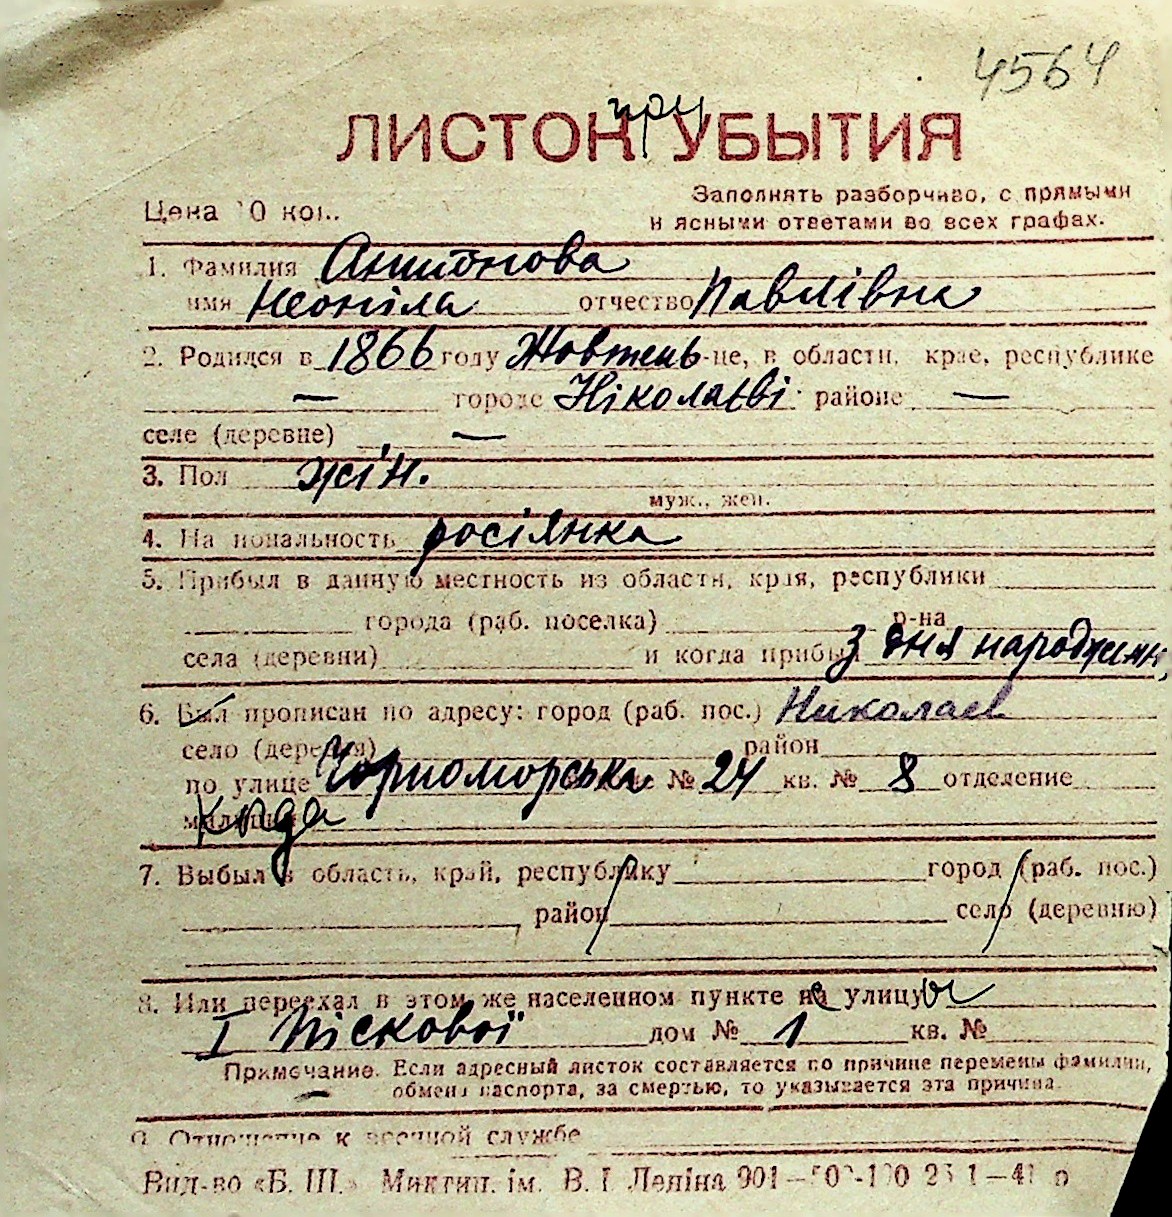 4564
при
ЛИСТОК УБЫТИЯ
Цена 10 коп.
Заполнять разборчиво, с прямыми
и ясными ответами во всех графах.
1. Фамилия Антонова
имя Неоніла отчество Павлівна
2. Родился в 1866 году Жовтень -це, в области, крае, республике
— городе Ніколаєві районе —
селе (деревне) —
3. Пол жін.
муж., жен.
4. Национальность росіянка
5. Прибыл в данную местность из области, края, республики
города (раб. поселка) р-на
села (деревни) и когда прибыл з дня народження
6. Был прописан по адресу: город (раб. пос.) Николаев
село (деревня) район
по улице Чорноморська № 24 кв. № 8 отделение
милиции
7. Выбыл в область, край, республику город (раб. пос.)
район село (деревню)
8. Или переехал в этом же населенном пункте на улицу
I Піскової дом № 1 кв. №
Примечание. Если адресный листок составляется по причине перемены фамилии,
обмена паспорта, за смертью, то указывается эта причина.
9. Отношение к военной службе
Вид-во «Б. Ш.» Миктип. ім. В. І. Леніна 901—